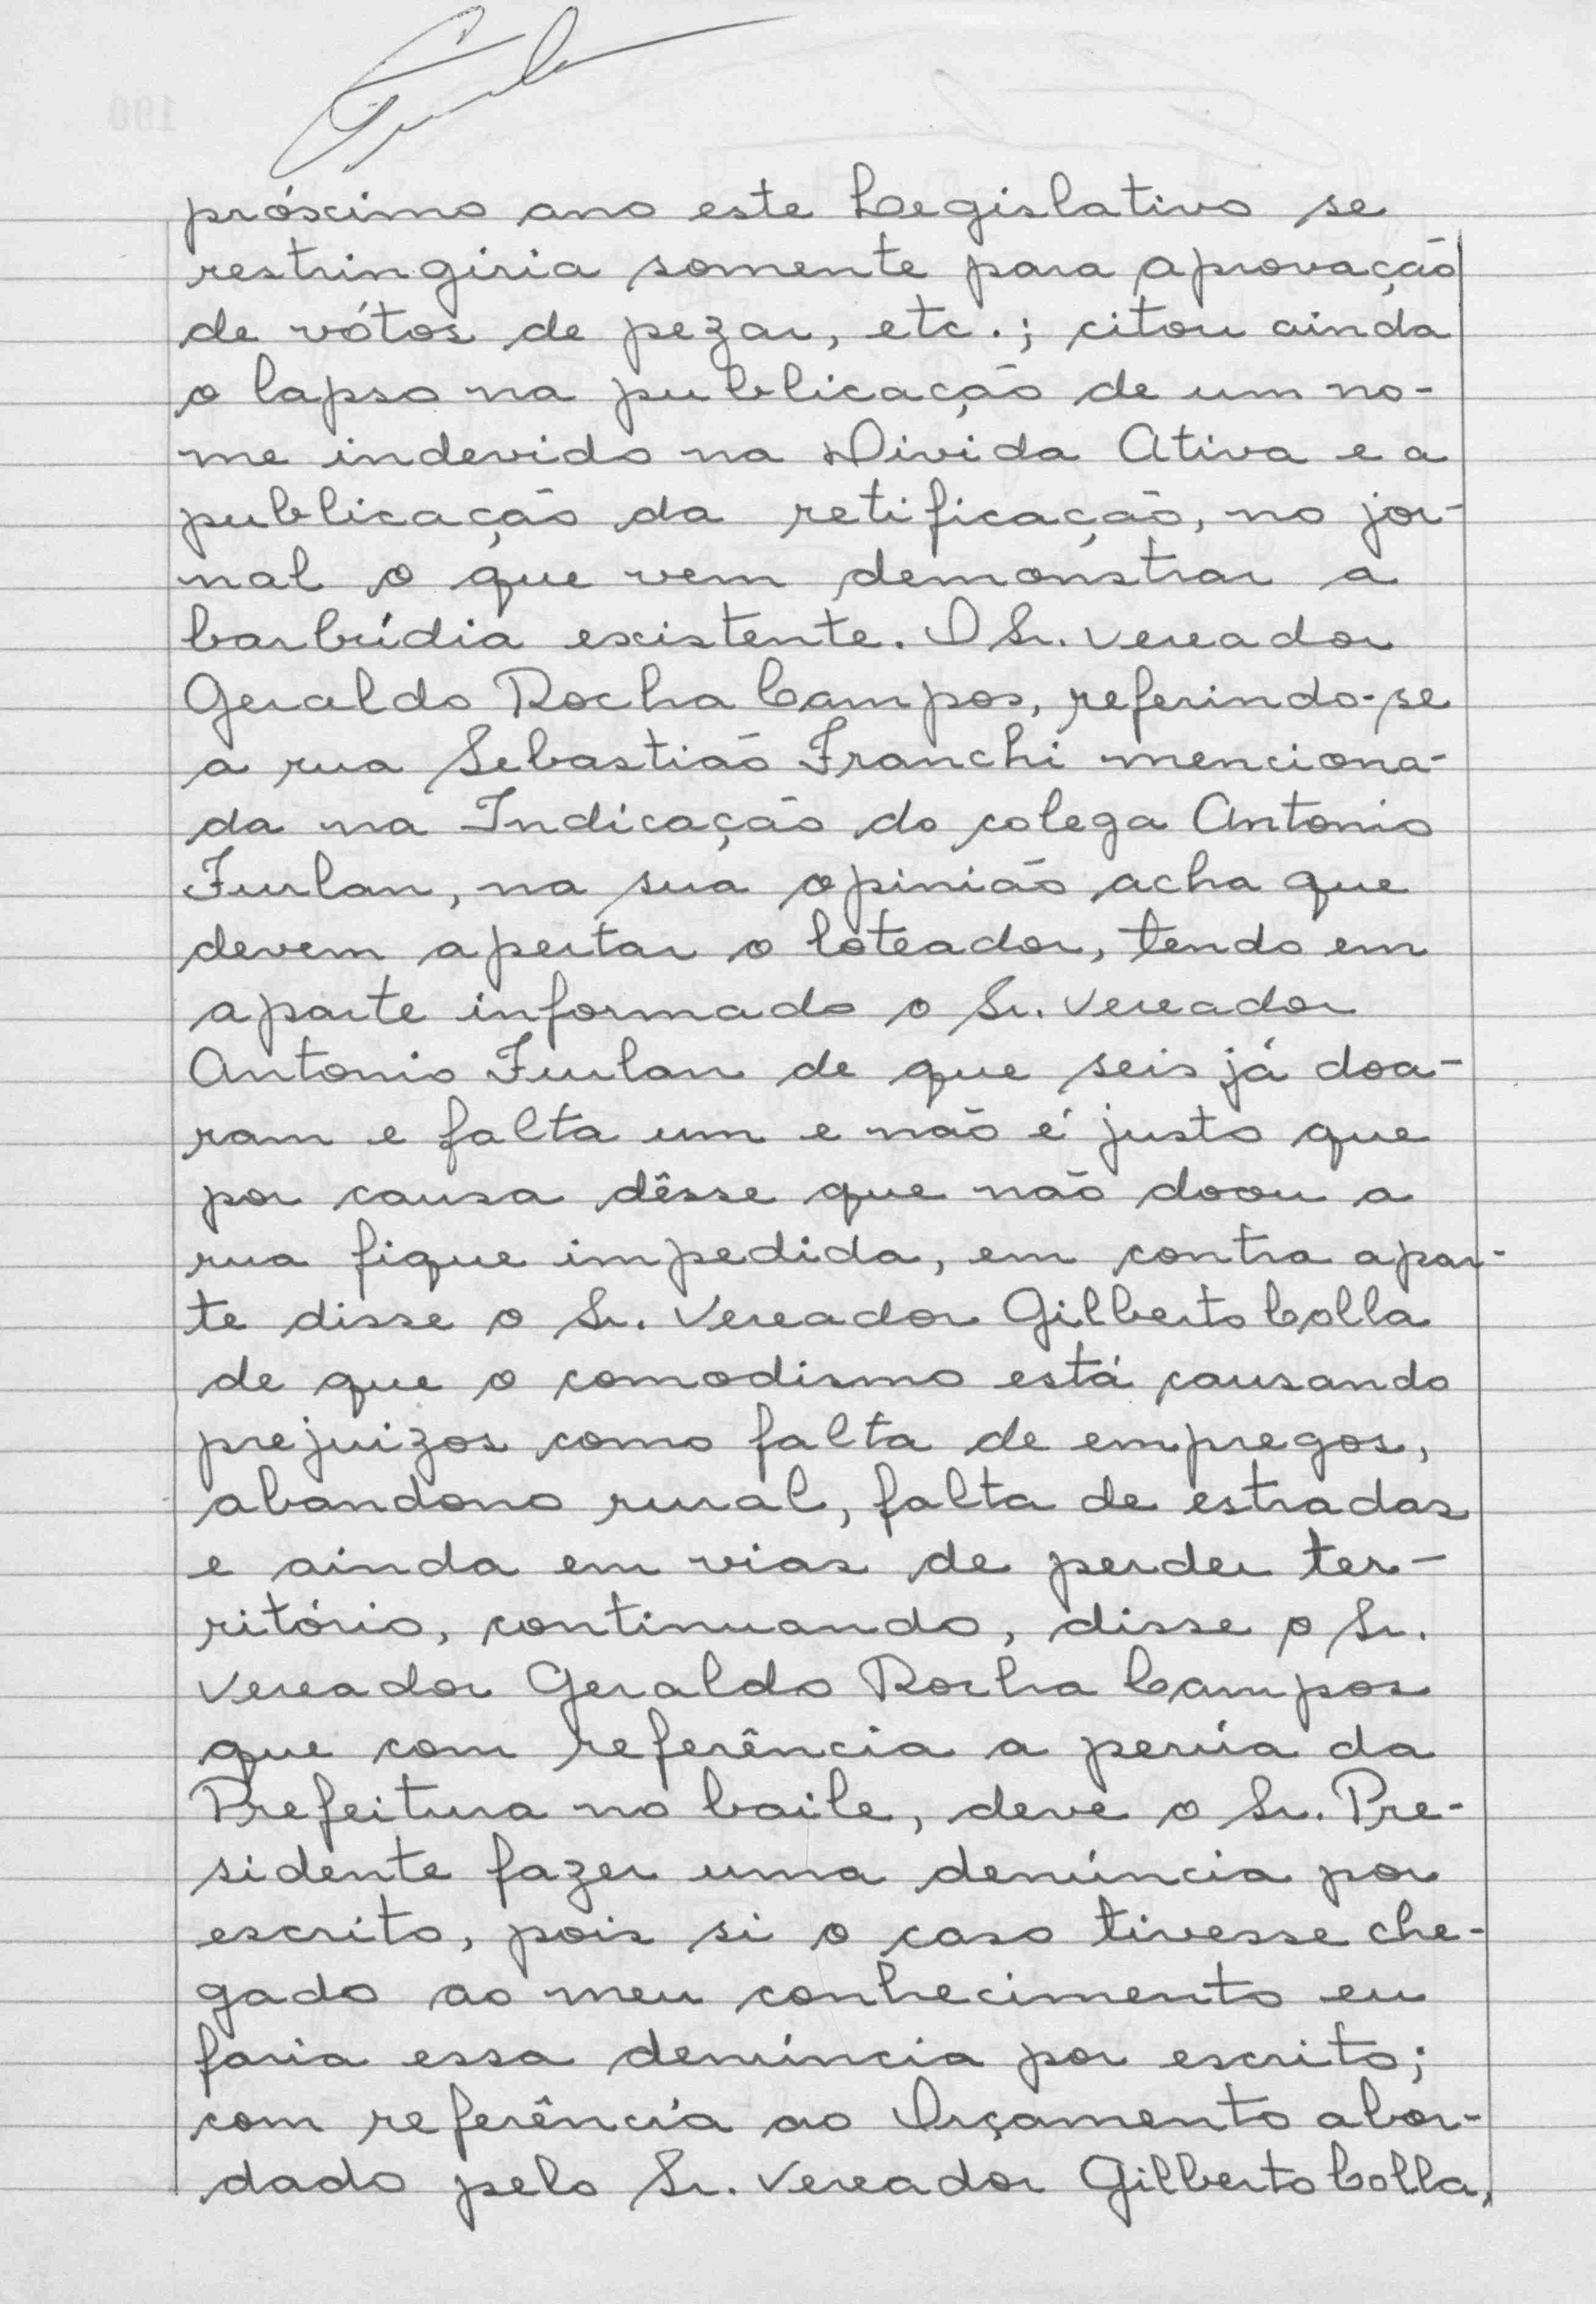 próximo ano este Legislativo se
restringiria somente para aprovação
de vótos de pezar, etc.; citou ainda
o lapso na publicação de um no-
me indevido na Divida Ativa e a
publicação da retificação, no jor-
nal o que vem demonstrar a
barbúdia existente. O Sr. Vereador
Geraldo Rocha Campos, referindo-se
a rua Sebastião Franchi menciona-
da na Indicação do colega Antonio
Furlan, na sua opinião acha que
devem apertar o loteador, tendo em
aparte informado o Sr. Vereador
Antonio Furlan de que seis já doa-
ram e falta um e não é justo que
por causa dêsse que não doou a
rua fique impedida, em contra apar-
te disse o Sr. Vereador Gilberto Colla
de que o comodismo está causando
prejuizos como falta de empregos,
abandono rural, falta de estradas
e ainda em vias de perder ter-
ritório, continuando, disse o Sr.
Vereador Geraldo Rocha Campos
que com referência a perúa da
Prefeitura no baile, deve o Sr. Pre-
sidente fazer uma denúncia por
escrito, pois si o caso tivesse che-
gado ao meu conhecimento eu
faria essa denúncia por escrito;
com referência ao Orçamento abor-
dado pelo Sr. Vereador Gilberto Colla,